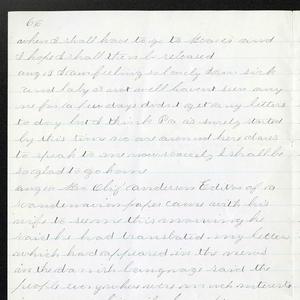 66
when I shall have to go to Court and
I hope I shall then be released
Aug 12 I am feeling so lonely I am sick
and baby is not well havent seen any
one for a few days didnt get any letters
to day but I think Pa is surely started
by this time no one around here dares
to speak to me now scarcely I shall be
so glad to go home
Aug 20 Mr Clif Anderson Editor of a
Scandenavian paper came with his
wife to see me this morning he
said he had translated my letter
which had appeared in the news
in the danish language said the
people everywhere were much interested